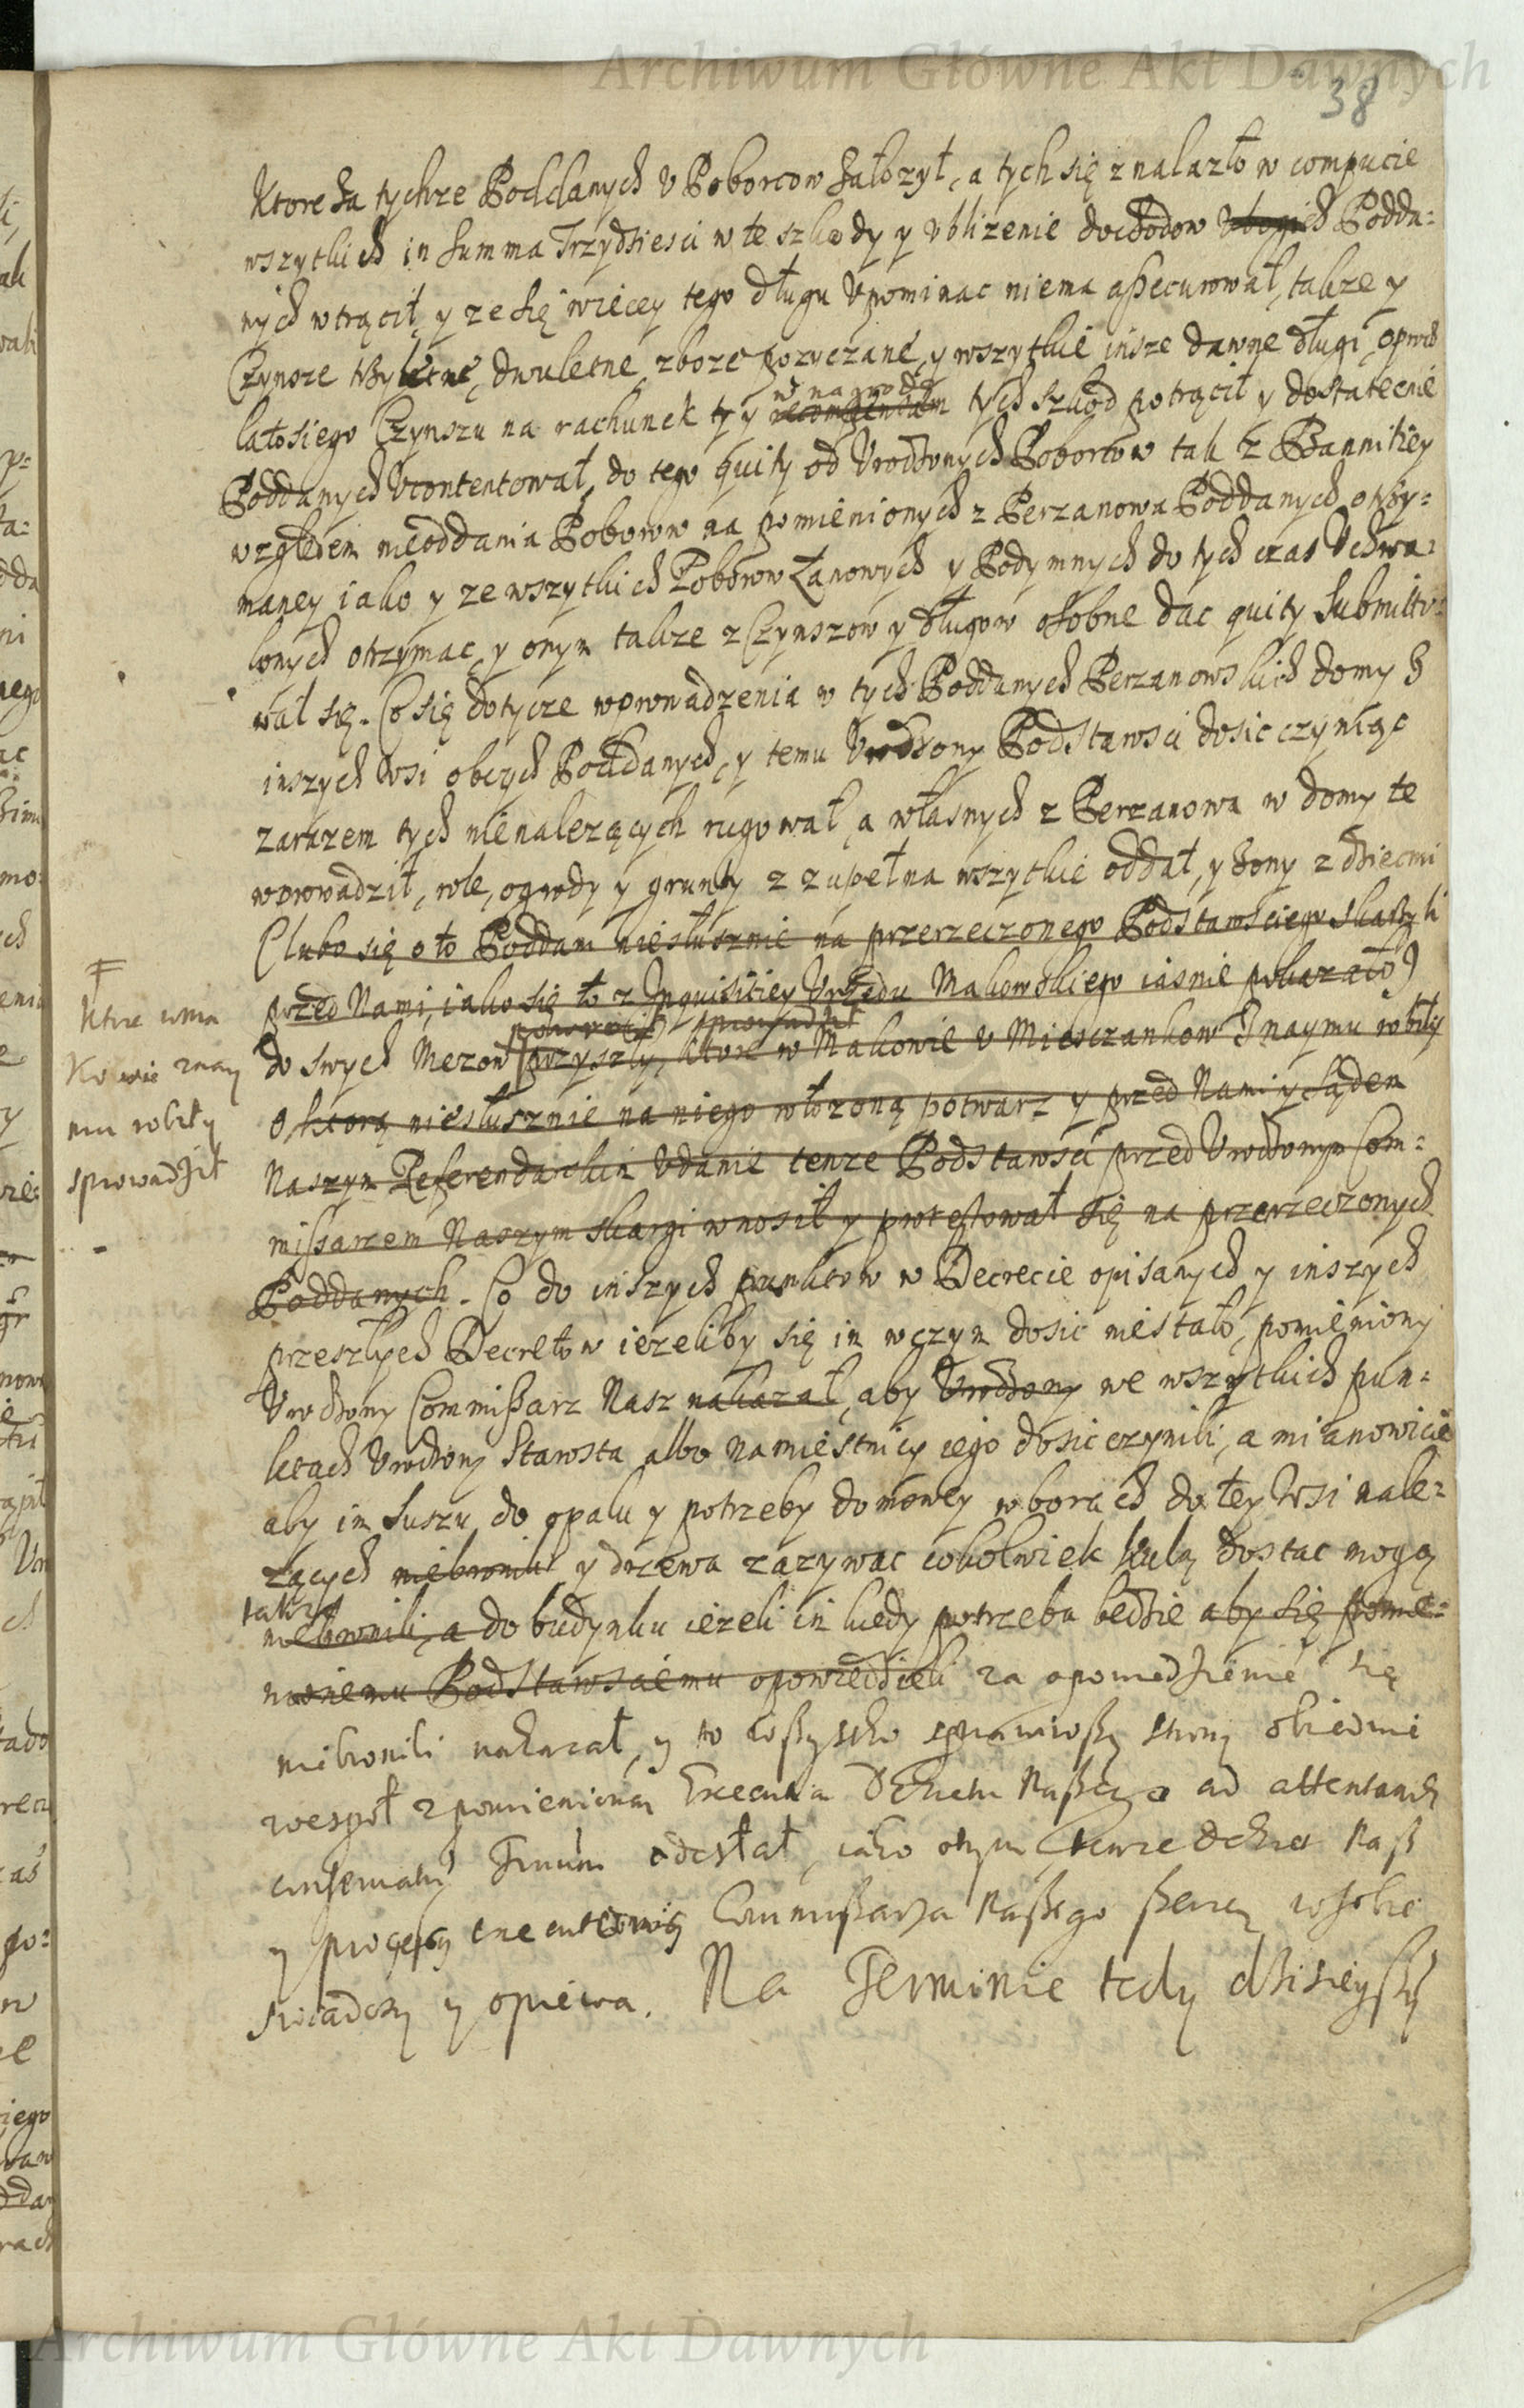 Archiwum Główne Akt Dawnych
38
Ktore za tychze Poddanych v Poborcow załozył, a tych się znalazło w compucie
wszytkich in summa Trzydziesci w te szkody y vblizenie dochodow Vbogich Podda=
nych wtrącił, y ze się więcey tego długu Vpominac niema assecurował, takze y
Czynsze trzyletne, dwuletne zboze pozyczane, y wszytkie insze dawne długi, oprocz
latosiego Czynszu na rachunek ty y recompensam w nagrodę tych szkod potrącił y dostatecnie
Poddanych Vcontentował, do tego quity od Vrodzonych Poborcow tak z Bannitiey
względem nieoddania Poborow na pomienionych z Perzanowa Poddanych otrzy=
maney iako y ze wszytkich Poborow Łanowych y Podymnych do tych czas Vchwa=
lonych otrzymac, y onym takze z Czynszow y długow osobne dac quity submitto=
wał się. Co się dotycze wprowadzenia w tych Poddanych Perzanowskich domy z
inszych wsi obcych Poddanych, y temu Vrodzony Podstarosci dosic czyniąc
zarazem tych nienalezących rugował, a własnych z Perzanowa w domy te
wprowadził, role, ogrody y grunty z zupełna wszytkie oddał, y zony z dziecmi
(lubo się o to Poddani niesłusznie na przerzeczonego Podstarosciego skarzyli
przed Nami, iako się to z Inquisitiey Vrzędu Makowskiego iasnie pokazało)
do swych Mezow przyszły, ktore w Makowie v Miesczankow z naymu robiły
sprowadził
F
Ktore
znay
mu robiły
sprowadził
o ktorą niesłusznie na niego włozoną potwarz y przed Nami y sądem
Naszym Referendarskim Vdanie tenze Podstarosci przed Vrodzonym Com=
missarzem Naszym skargi wnosił y protestował się na przerzeczonych
Poddanych. Co do inszych punktow w Decrecie opisanych y inszych
przeszłych Decretow iezeliby się im w czym dosic niestało, pomieniony
Vrodzony Commissarz Nasz nakazał, aby Vrodzony we wszytkich pun=
ktach Vrodzony Starosta albo Namiestnicy iego dosic czynili, a mianowicie
aby im suszu do opału y potrzeby domowey w borach do tey Wsi nale=
zących niebronili y drzewa zazywac cokolwiek dostac mogą
takze
niebronili, a do budynku iezeli im kiedy potrzeba będzie aby się pomie=
nionemu Podstarosciemu opowiedzieli za opowiedzienie się
niebronili nakazał, y to wszystko sprawiwszy strony obiedwie
wespoł z pomienioną Executia Dekretu Naszego ad attentandum
conservatum Forum odesłał, iako o tym tenze Dekret Nasz
y process executiowny Commissarza Naszego szerzey w sobie
swiadczy y opiewa. Na Terminie tedy dzisieyszy
Archiwum Główne Akt Dawnych